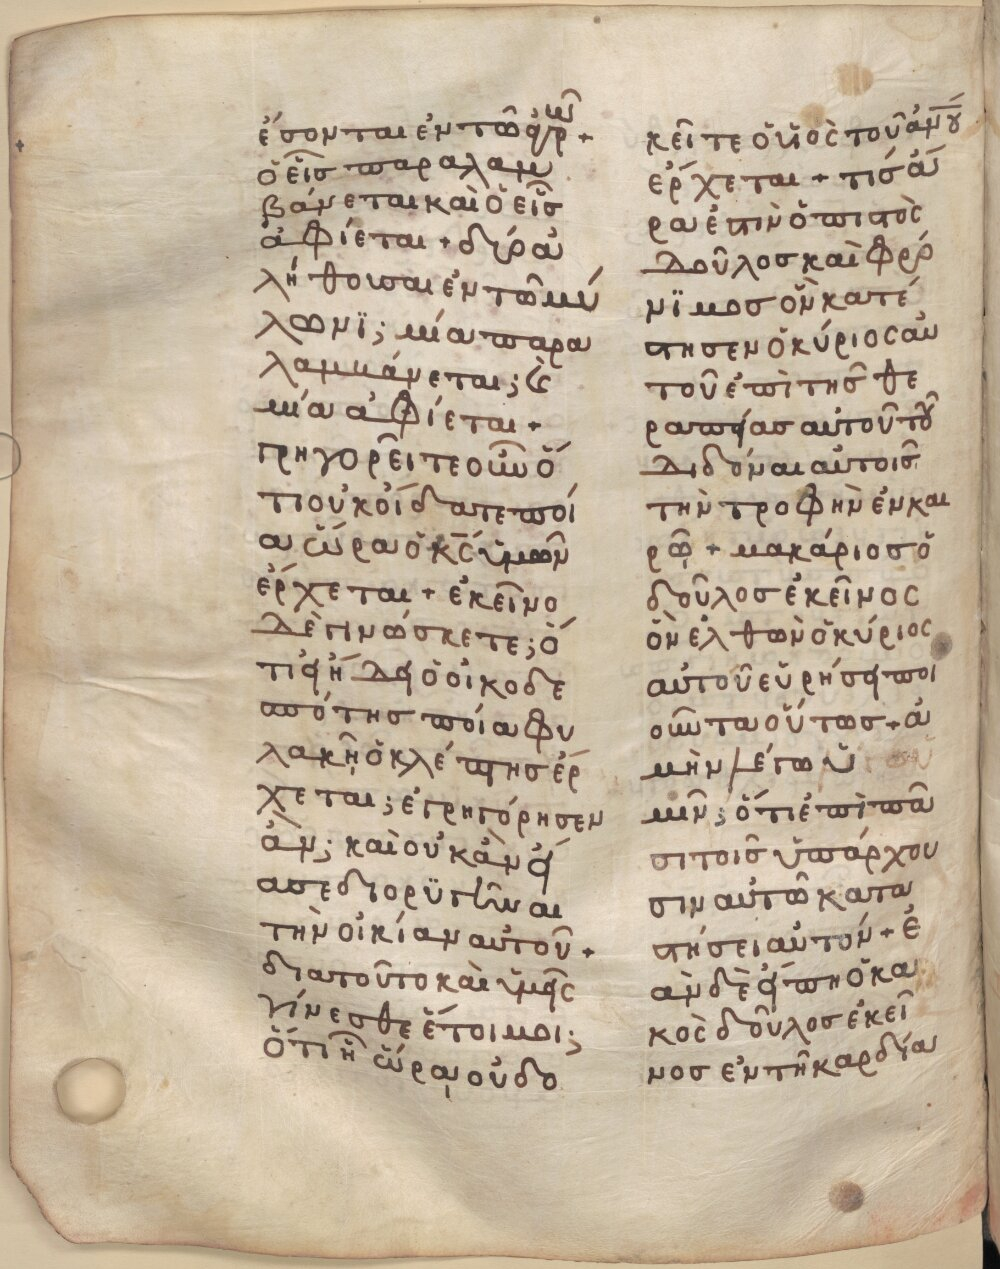 ἔσονται ἐν τῶ ἀγρῶ +
ὁ εἷσ παραλαμ
βάνεται καὶ ὁ εἷσ
ἀφίεται + δύο ἀ
λήθουσαι ἐν τῶ μύ
λωνϊ; μία παρα
λαμβάνεται; καὶ
μία ἀφίεται +
γρηγορεῖτε οὖν ὅ
τι οὐκ οἴδατε ποί
α ὥρα ὁ κ̅ς̅ ὑμῶν
ἔρχεται + ἐκεῖνο
δὲ γινώσκετε; ὅ
τι εἰ ἤδει ὁ οἰκοδε
σπότησ ποία φυ
λακῆ ὁ κλέπτησ ἔρ
χεται; ἐγρηγόρησεν
ἄν; καὶ οὐκ ἂν εἴ
ασε διορϋγῆναι
τὴν οἰκίαν αὐτοῦ +
διατοῦτο καὶ ὑμεῖς
γίνεσθε ἕτοιμοι;
ὅτι ἧ ὥρα οὐ δο
κεῖτε ὁ υἱὸς τοῦ ἀν̅ο̅υ̅
ἔρχεται + τίσ ἄ
ρα ἐστὶν ὁ πιστὸς
δοῦλοσ καὶ φρό
νϊμοσ ὃν κατέ
στησεν ὁ κύριος αὐ
τοῦ ἐπὶ τῆσ θε
ραπείασ αὐτοῦ τοῦ
διδόναι αὐτοῖσ
τὴν τροφὴν ἐν και
ρῶ + μακάριοσ ὁ
δοῦλοσ ἐκεῖνος
ὃν ἐλθὼν ὁ κύριος
αὐτοῦ εὑρήσει ποι
οῦντα οὕτωσ + ἀ
μὴν λέγω ὑ
μῖν; ὅτι ἐπὶ πᾶ
σι τοῖσ ὑπάρχου
σιν αὐτῶ κατα
στήσει αὐτόν + ἐ
ὰν δὲ εἴπη ὁ κα
κὸς δοῦλοσ ἐκεῖ
νοσ ἐν τῆ καρδία